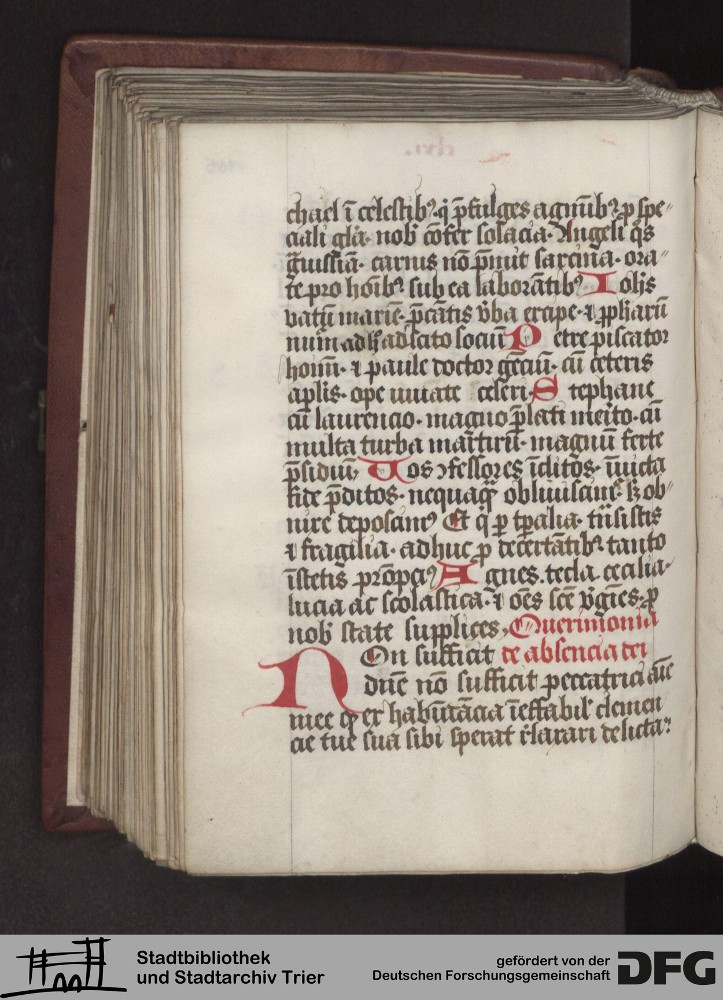 chael ī celestibꝰ q̇ p̄fulges agmībꝰ ꝑ spe⸗
ciali glā· nob̄ cōfer solacia· Angeli q̄s
g̃uissīa· carnis nō p̄mit sarcina· ora⸗
te pro hoīb; sub ea laborātibꝰ Iohīs
vatū marie· p̄cātis v̄ba
Petre piscator
hoīm· ⁊ paule doctor gēciū· cū ceteris
aplīs· ope iuuate celeri· Stephane
cū laurencio· magno p̄lati mēito· cū
multa turba mar̄tirū· magnū ferte
p̄sidiū, Uos ↄfessores īclitos· īuicta
fide p̄ditos· nequaq̄ȝ
nire deposcimꝰ Et q̇ ꝑ tp̄alia· trāsistis
⁊ fragilia· adhuc ꝓ decertātibꝰ tanto
īstetis Agnes. tecla. cecilia·
lucia ac scolastica· ⁊ oēs sc̄e v̄gīes· ꝓ
nob̄ state supplices, Querimonia
Non sufficit de absencia dei
dn̄e nō sufficit peccatrici aīe
mee ꝙ ex habūdācia īeffabil̓ clemen
cie tue sua sibi sperat r̄laxari delicta·
Stadtbibliothek
und Stadtarchiv Trier
gefördert von der
Deutschen Forschungsgemeinschaft
DFG